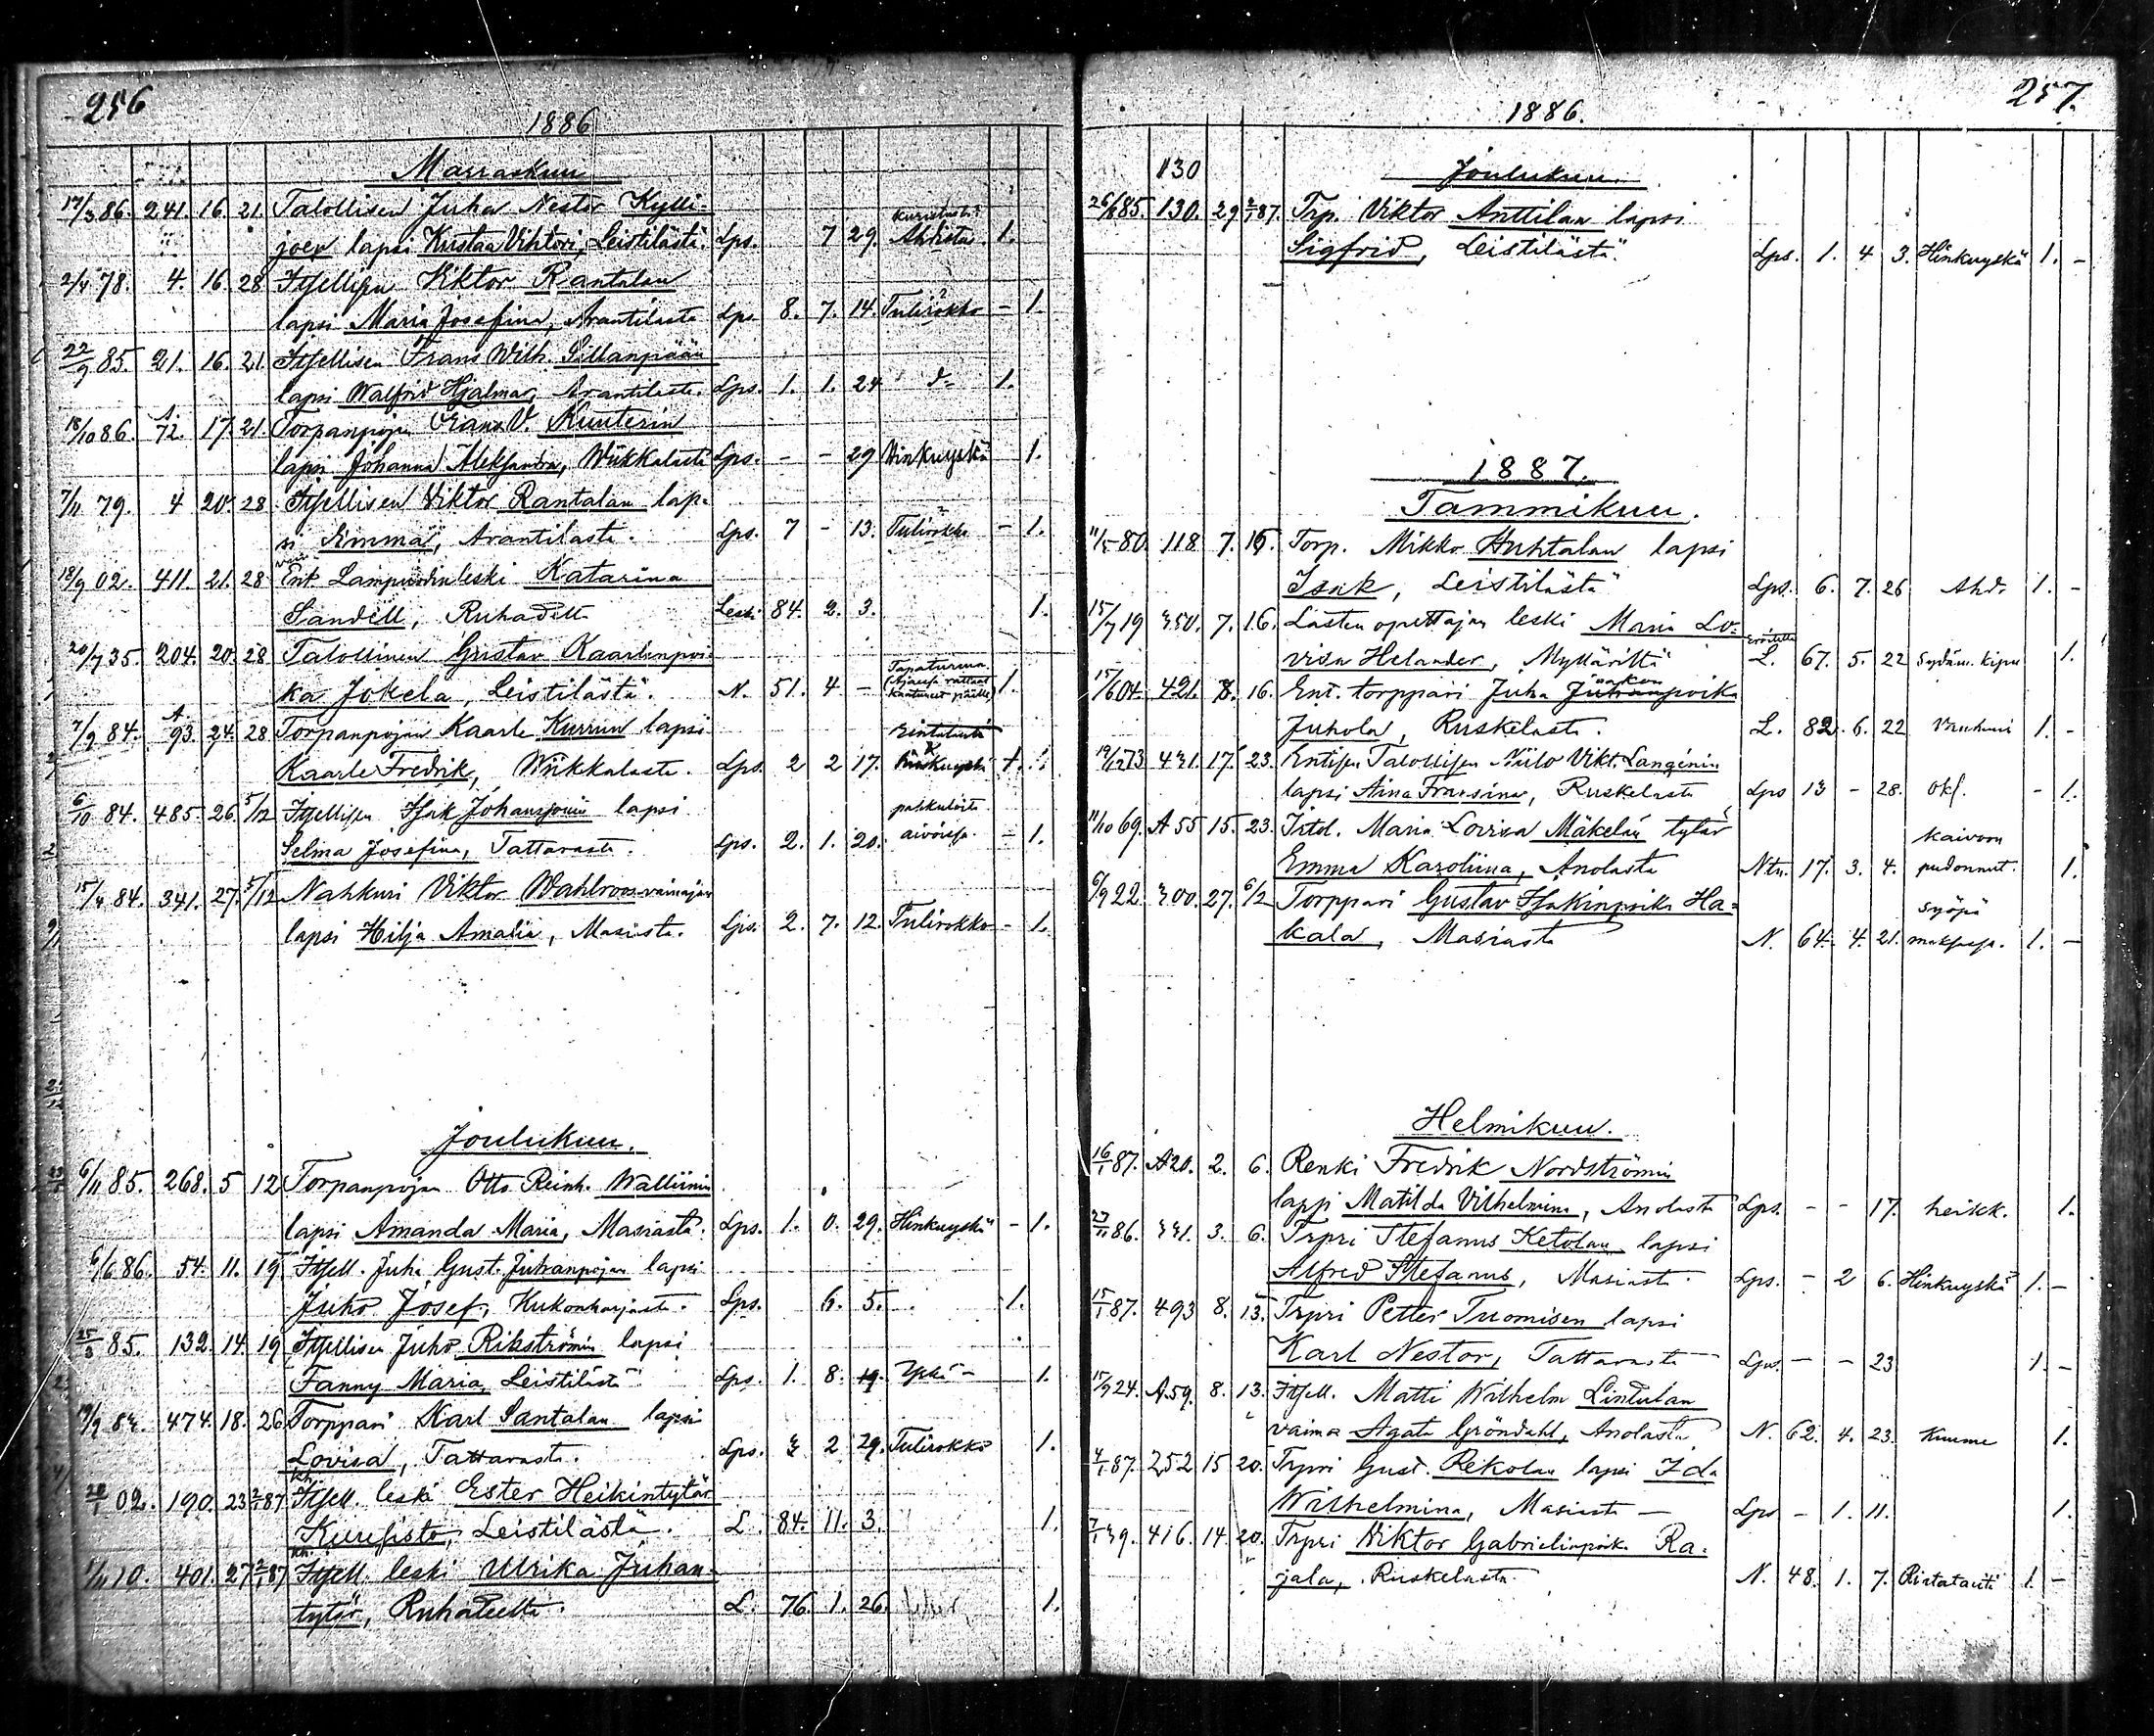 256
1886
Marraskuu
17/3 86. 241. 16. 21. Talollisen Juha Nestor Kylli-
joen lapsi Kustaa Vihtori, Leistilästä. Lps. 7 29. Ahdistus 1.
2/4 78. 4. 16. 28 Itsellisen Viktor Rantalan
lapsi Maria Josefina, Arantilasta Lps. 8. 7. 14. Tulirokko - 1.
22/9 85. 21. 16. 21. Itsellisen Frans Wilh. Sillanpään
lapsi Walfrid Hjalmar, Arantilasta. Lps. 1. 1. 24 d:o 1.
18/10 86. A. 72. 17. 21. Torpanpojan Frans V. Kuuterin
lapsi Johanna Aleksandra, Wiikkalasta Lps. - - 29 Hinkuyskä 1.
7/11 79. 4 20. 28 Itsellisen Viktor Rantalan lap-
si Emma, Arantilasta. Lps. 7 - 13. Tulirokko - 1.
18/9 02. 411. 21. 28 Ent. Lampuodin leski Katarina
Sandell, Ruhadelta Leski 84. 2. 3. 1.
20/7 35. 204. 20. 28 Talollinen Gustav Kaarlenpoi-
ka Jokela, Leistilästä. N. 51. 4. - Tapaturma (Ajaissa rattaat kaatuneet päälle) 1.
7/9 84. A 93. 24. 28 Torpanpojan Kaarle Kurrin lapsi
Kaarle Fredrik, Wiikkalasta. Lps. 2 2 17. Hinkuyskä
6/10 84. 485. 26. 5/12 Itsellisen Isak Johanssonin lapsi
Selma Josefina, Tattarasta. Lps. 2. 1. 20. aivoissa. - 1.
15/4 84. 341. 27. 5/12 Nahkuri Viktor Wahlroos vainajan
lapsi Hilja Amalia, Masiasta. Lps. 2. 7. 12. Tulirokko - 1.
Joulukuu.
6/11 85. 268. 5 12 Torpanpojan Otto Reinh. Walliinin
lapsi Amanda Maria, Masiasta. Lps. 1. 0. 29. Hinkuyskä - 1.
6/6 86. 54. 11. 19 Itsell. Juha Gust. Juhanpojan lapsi
Juho Josef, Kukonharjasta. Lps. 6. 5. 1.
25/3 85. 132. 14. 19 Itsellisen Juho Rikströmin lapsi
Fanny Maria, Leistilästä Lps. 1. 8. 19. Yskä - 1.
474. 18. 26 Torppari Karl Santalan lapsi
Lovisa, Tattarasta. Lps. 2 29. Tulirokko 1.
20/1 02. 190. 23 2/1 87 Itsell. leski Ester Heikintytär
Kuusisto, Leistilästä. L. 84. 11. 3. 1.
1/11 10. 401. 27 2/1 87 Itsell. leski Ulrika Juhan-
tytär, Ruhadelta. L. 76. 1. 26. 1.
257.
1886.
130 Joulukuu.
26/8 85. 130. 29 2/1 87. Trp. Viktor Anttilan lapsi
Sigfrid, Leistilästä. Lps. 1. 4 3. Hinkuyskä 1. -
1887.
Tammikuu.
11/5 80. 118 7. 16. Torp. Mikko Huhtalan lapsi
Isak, Leistilästä Lps. 6. 7. 26 Ahd. 1. -
15/7 19 350. 7. 16. Lasten opettajan leski Maria Lo-
visa Helander, Mylläriltä L. 67. 5. 22 Sydäm. kipu 1.
15/6 04. 421. 8. 16. Ent. torppari Juha Jaakonpoika
Juhola, Ruskelasta. L. 82. 6. 22 Vanhuus 1. -
19/12 73 431. 17. 23. Entisen Talollisen Niilo Vikt. Langénin
lapsi Aina Fransina, Ruskelasta Lps 13 - 28. - 1.
11/10 69. A 55 15. 23. Irtol. Maria Lovisa Mäkelän tytär
Emma Karoliina, Anolasta Ntn. 17. 3. 4. kaivoon pudonnut. 1.
6/9 22 300. 27. 6/2 Torppari Gustav Isakinpoika Ha-
kala, Masiasta N. 64. 4. 21. Syöpä maksassa. 1. -
Helmikuu.
16/1 87. A20. 2. 6. Renki Fredrik Nordströmin
lapsi Matilda Vilhelmina, Anolasta Lps. - - 17. heikk. 1.
27/11 86. 331. 3. 6. Trpri Stefanus Ketolan lapsi
Alfred Stefanus, Masiasta. Lps. - 2 6. Hinkuyskä 1. -
15/1 87. 493 8. 13. Trpri Petter Tuomisen lapsi
Karl Nestor, Tattarasta Lps. - - 23 1. -
15/9 24. A59. 8. 13. Itsell. Matti Wilhelm Lintulan
vaimo Agata Gröndahl, Anolasta N. 62. 4. 23. Kuume 1.
4/1 87. 252 15 20. Trpri Gust. Rekolan lapsi Ida
Wilhelmina, Masiasta - Lps - 1. 11. 1.
7/1 39. 416. 14. 20. Trpri Viktor Gabrielinpoika Ra-
jala, Ruskelasta. N. 48. 1. 7. Rintatauti 1. -